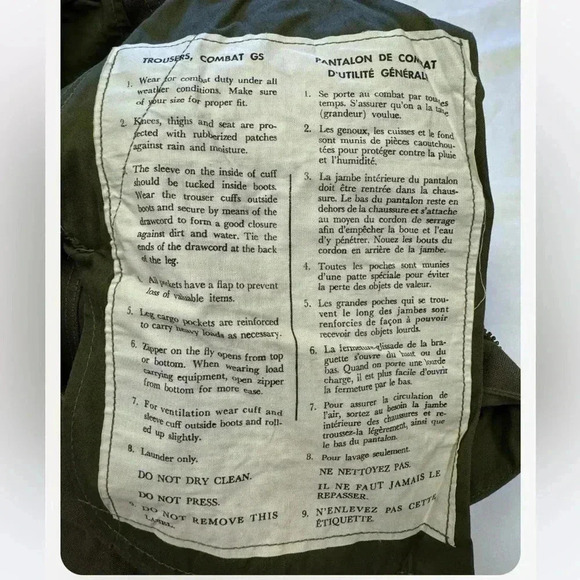 TROUSERS, COMBAT GS
1. Wear for combat duty under all
weather conditions. Make sure
of your size for proper fit.
2. Knees, thighs and seat are pro-
tected with rubberized patches
against rain and moisture.
The sleeve on the inside of cuff
should be tucked inside boots.
Wear the trouser cuffs outside
boots and secure by means of the
drawcord to form a good closure
against dirt and water. Tie the
ends of the drawcord at the back
of the leg.
All pockets have a flap to prevent
loss of valuable items.
5. Leg cargo pockets are reinforced
to carry heavy loads as necessary.
6. Zipper on the fly opens from top
or bottom. When wearing load
carrying equipment, open zipper
from bottom for more ease.
7. For ventilation wear cuff and
sleeve cuff outside boots and roll-
ed up slightly.
8. Launder only.
DO NOT DRY CLEAN.
DO NOT PRESS.
9. DO NOT REMOVE THIS
LABEL.
PANTALON DE COMBAT
D'UTILITÉ GÉNÉRALE
1. Se porte au combat par tous
temps. S'assurer qu'on a la
(grandeur) voulue.
2. Les genoux, les cuisses et le fond
sont munis de pièces caoutchou-
tées pour protéger contre la pluie
et l'humidité.
3. La jambe intérieure du pantalon
doit être rentrée dans la chaus-
sure. Le bas du pantalon reste en
dehors de la chaussure et s'attache
au moyen du cordon de serrage
afin d'empêcher la boue et l'eau
d'y pénétrer. Nouez les bouts du
cordon en arrière de la jambe.
4. Toutes les poches sont munies
d'une patte spéciale pour éviter
la perte des objets de valeur.
5. Les grandes poches qui se trou-
vent le long des jambes sont
renforcies de façon à pouvoir
recevoir des objets lourds.
6. La fermeture-glissade de la bra-
guette s'ouvre du haut ou du
bas. Quand on porte une lourde
charge, il est plus facile d'ouvrir
la fermeture par le bas.
7. Pour assurer la circulation de
l'air, sortez au besoin la jambe
intérieure des chaussures et re-
troussez-la légèrement, ainsi que
le bas du pantalon.
8. Pour lavage seulement.
NE NETTOYEZ PAS.
IL NE FAUT JAMAIS LE
REPASSER.
9. N'ENLEVEZ PAS CETTE
ÉTIQUETTE.